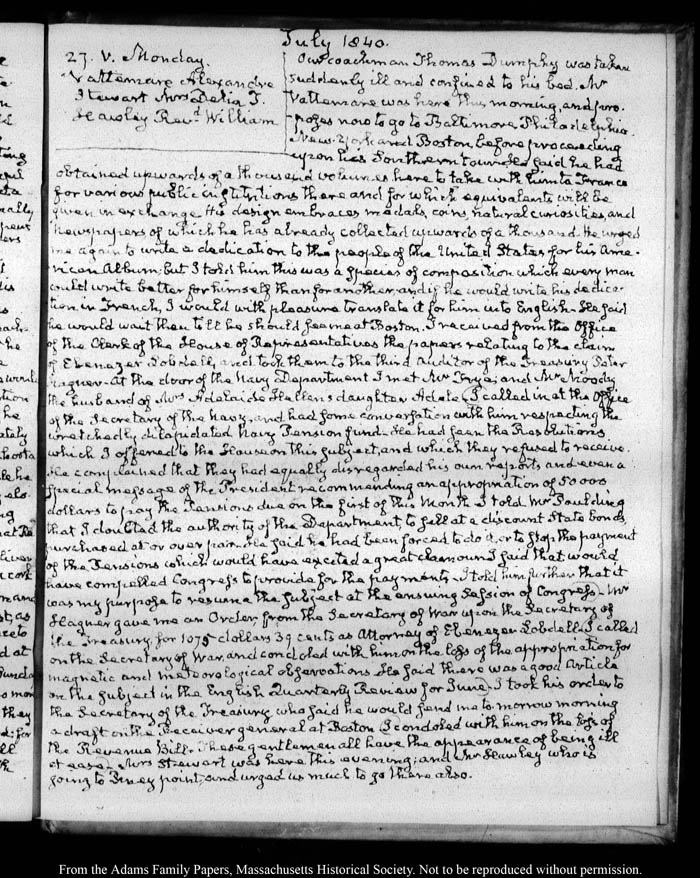 July 1840.
27. V. Monday.
Vattemare Alexandre
Stewart Mrs Delia T.
Hawley Revd. William
Our coachman Thomas Dumphy was taken
suddenly ill and confined to his bed. Mr
Vattemare was here this morning, and pro-
poses now to go to Baltimore, Philadelphia
New-York and Boston, before proceeding
upon his Southern tour. He said he had
obtained upwards of a thousand volumes here to take with him to France
for various public institutions there and for which equivalents will be
given in exchange. His design embraces medals, coins, natural curiosities, and
newspapers of which he has already collected upwards of a thousand. He urged
me again to write a dedication to the people of the United States for his Ame-
rican Album; but I told him this was a species of composition which every man
could write better for himself than for another, and if he would write his dedica-
tion in French, I would with pleasure translate it for him into English. He said
he would wait then till he should see me at Boston. I received from the Office
of the Clerk of the House of Representatives the papers relating to the claim
of Ebenezer Lobdell, and took them to the third Auditor of the Treasury Peter
Hagner. At the door of the Navy Department I met Mr Frye; and Mr Moody
the husband of Mrs Adelaide Hellen's daughter Adele. I called in at the Office
of the Secretary of the Navy, and had some conversation with him respecting the
wretchedly dilapidated Navy Pension fund. He had seen the Resolutions
which I offered to the House on this subject, and which they refused to receive.
He complained that they had equally disregarded his own reports and even a
special message of the President recommending an appropriation of 50 000
dollars to pay the Pensions due on the first of this Month. I told Mr Paulding
that I doubted the authority of the Department, to sell at a discount State bonds,
purchased at or over par. He said he had been forced to do it or to stop the payment
of the Pensions which would have excited a great clamour. I said that would
have compelled Congress to provide for the payments. I told him further that it
was my purpose to resume the subject at the ensuing Session of Congress. Mr
Hagner gave me an Order from the Secretary of War upon the Secretary of
the Treasury, for 1075 dollars 39 cents as Attorney of Ebenezer Lobdell. I called
on the Secretary of War, and condoled with him on the loss of the appropriation for
magnetic and meteorological observations. He said there was a good Article
on the subject in the English Quarterly Review for June. I took his order to
the Secretary of the Treasury who said he would send me to morrow morning
a draft on the Receiver general at Boston. I condoled with him on the loss of
the Revenue Bill. These gentlemen all have the appearance of being ill
at ease. Mrs Stewart was here this evening; and Mr Hawley who is
going to Piney point, and urged us much to go there also.
From the Adams Family Papers, Massachusetts Historical Society. Not to be reproduced without permission.